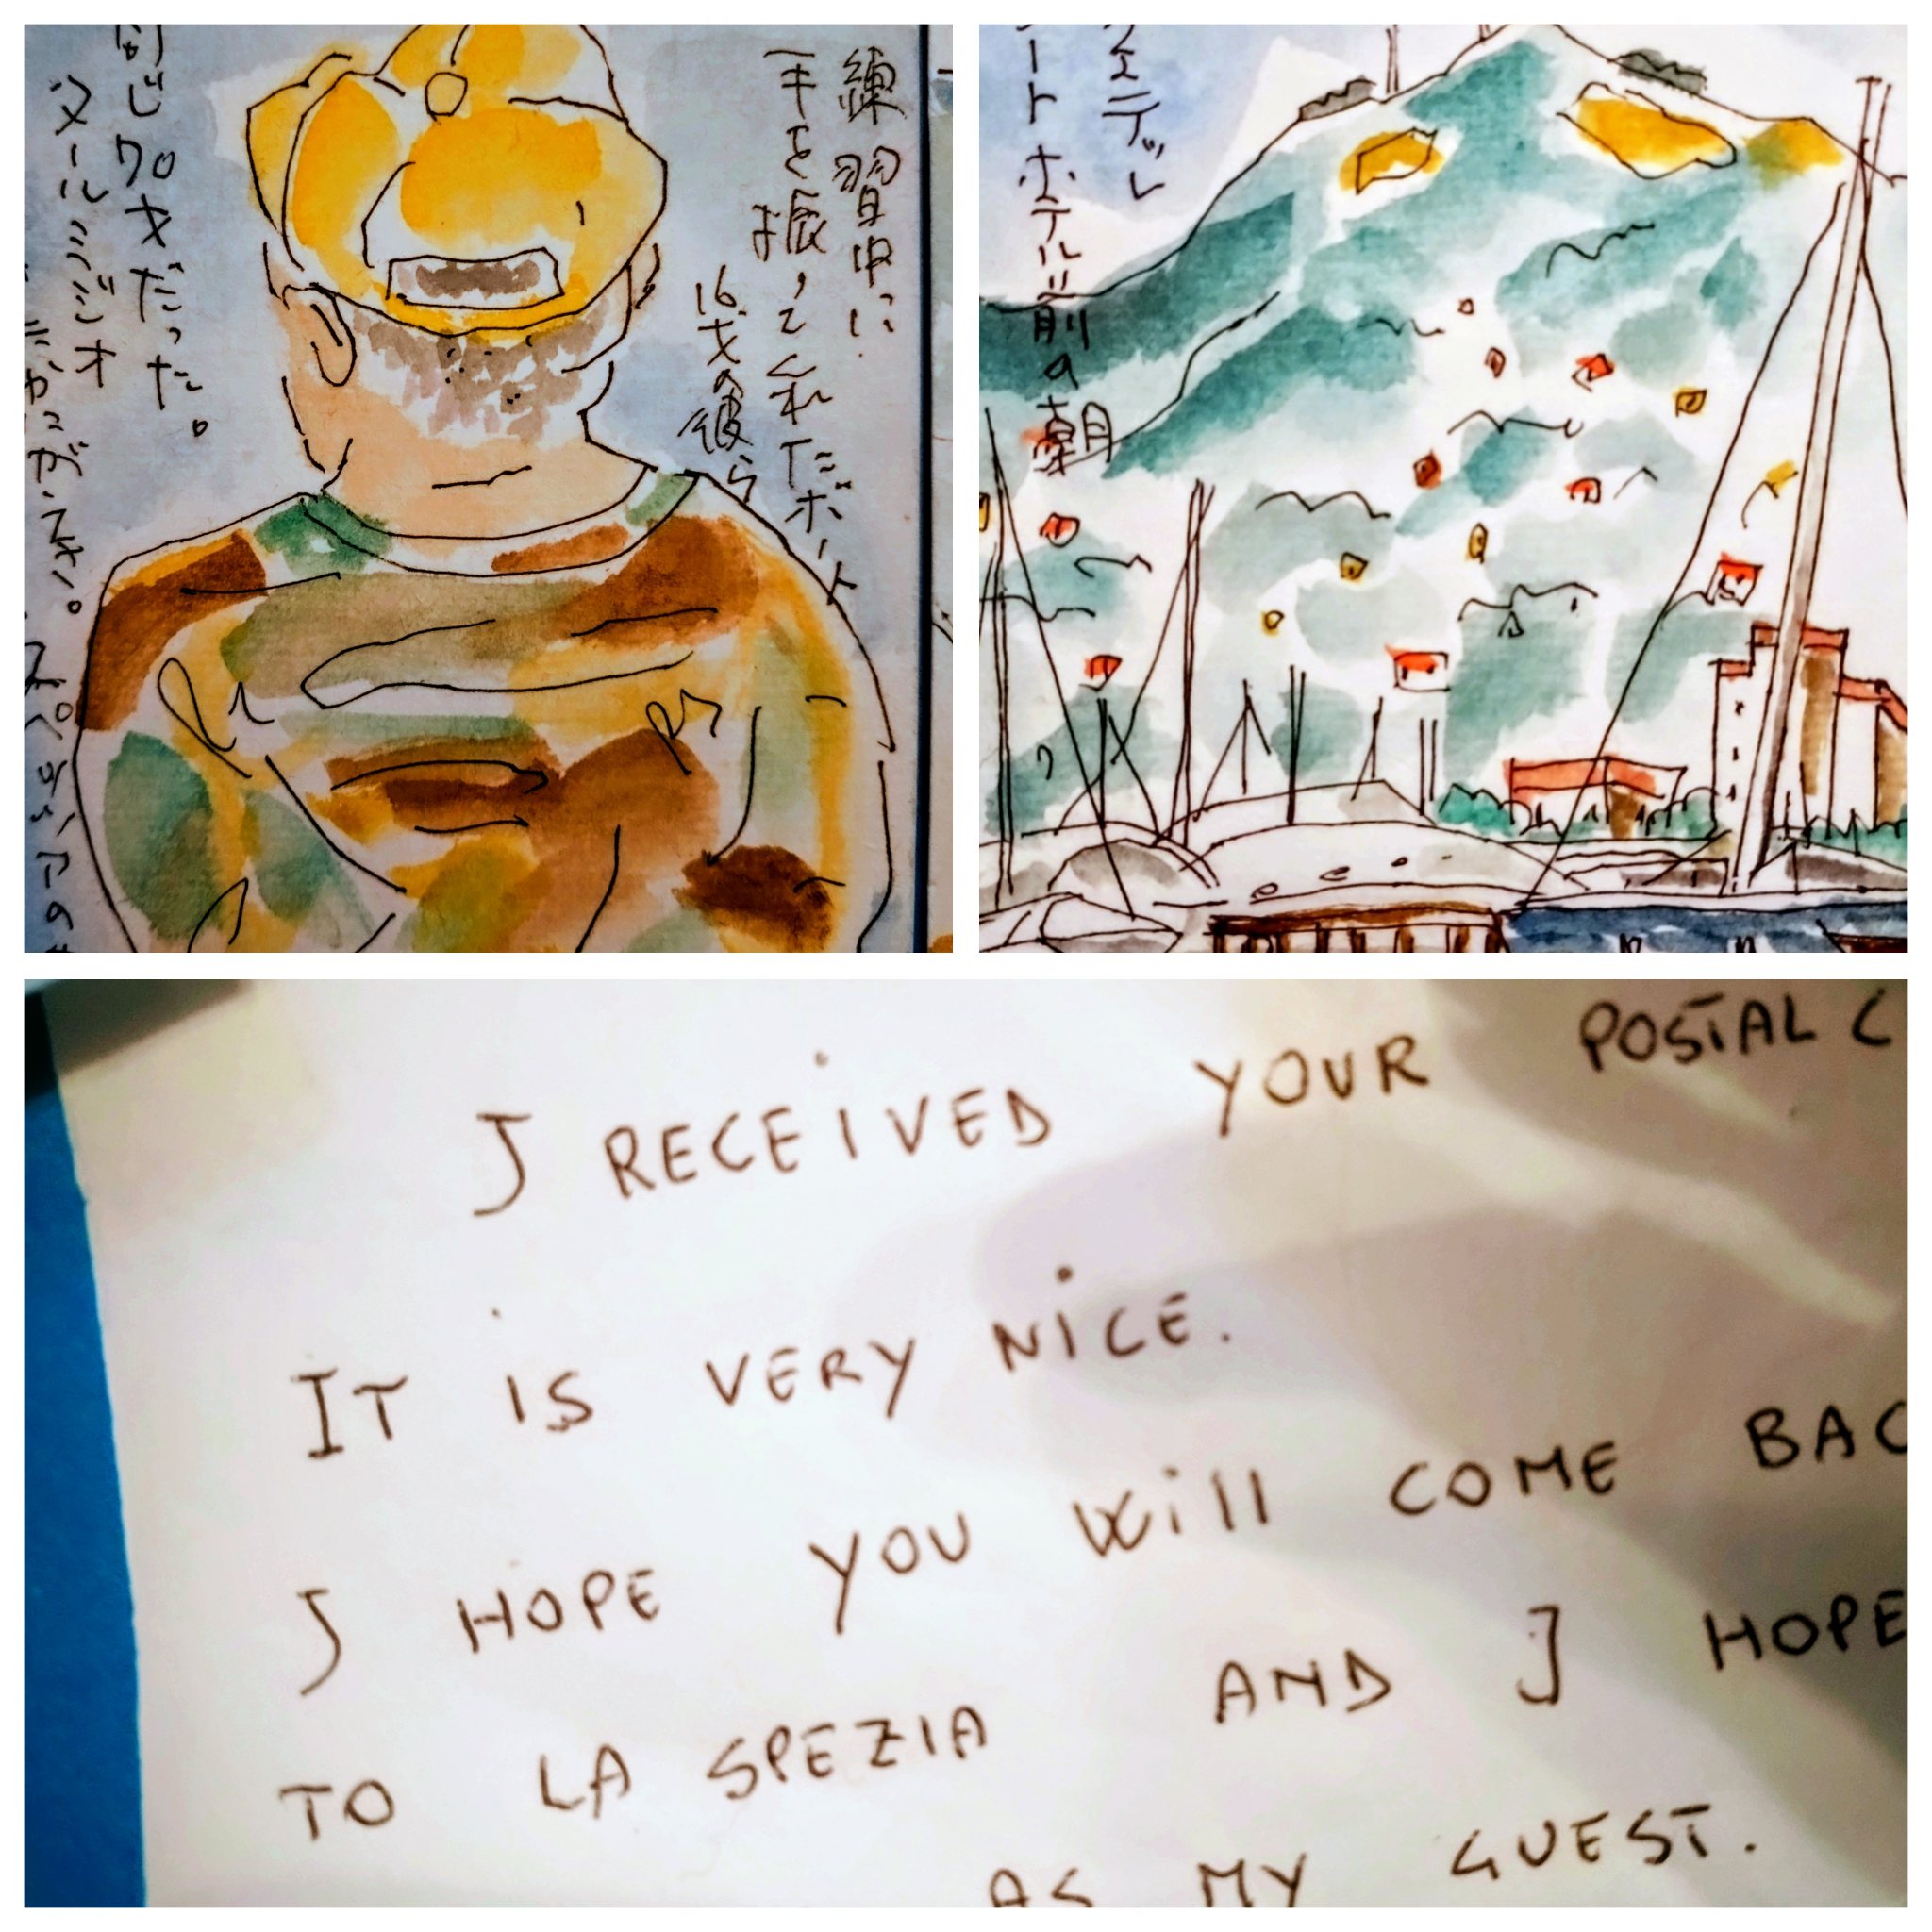 練習中に
手を振ってくれたボート
16才の彼ら
同じ70才だった。
タールミジオ
フェデッレ
ート ホテル前の朝
J RECEIVED YOUR POSTAL C
IT IS VERY NICE.
J HOPE YOU WILL COME BAC
TO LA SPEZIA AND J HOPE
AS MY GUEST.